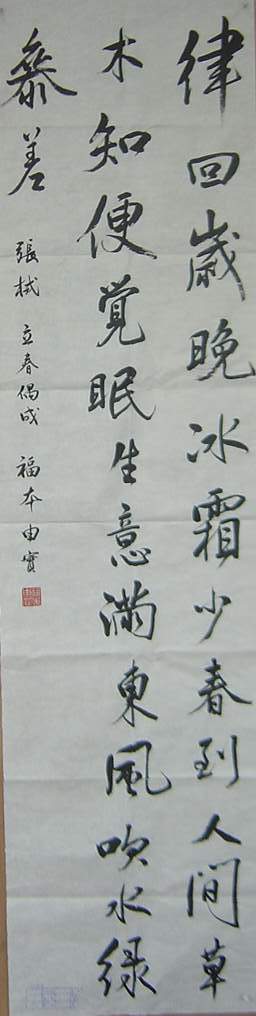 律回歲晚冰霜少春到人間草
木知便覺眠生意滿東風吹水綠
參差
張栻 立春偶成 福本由實